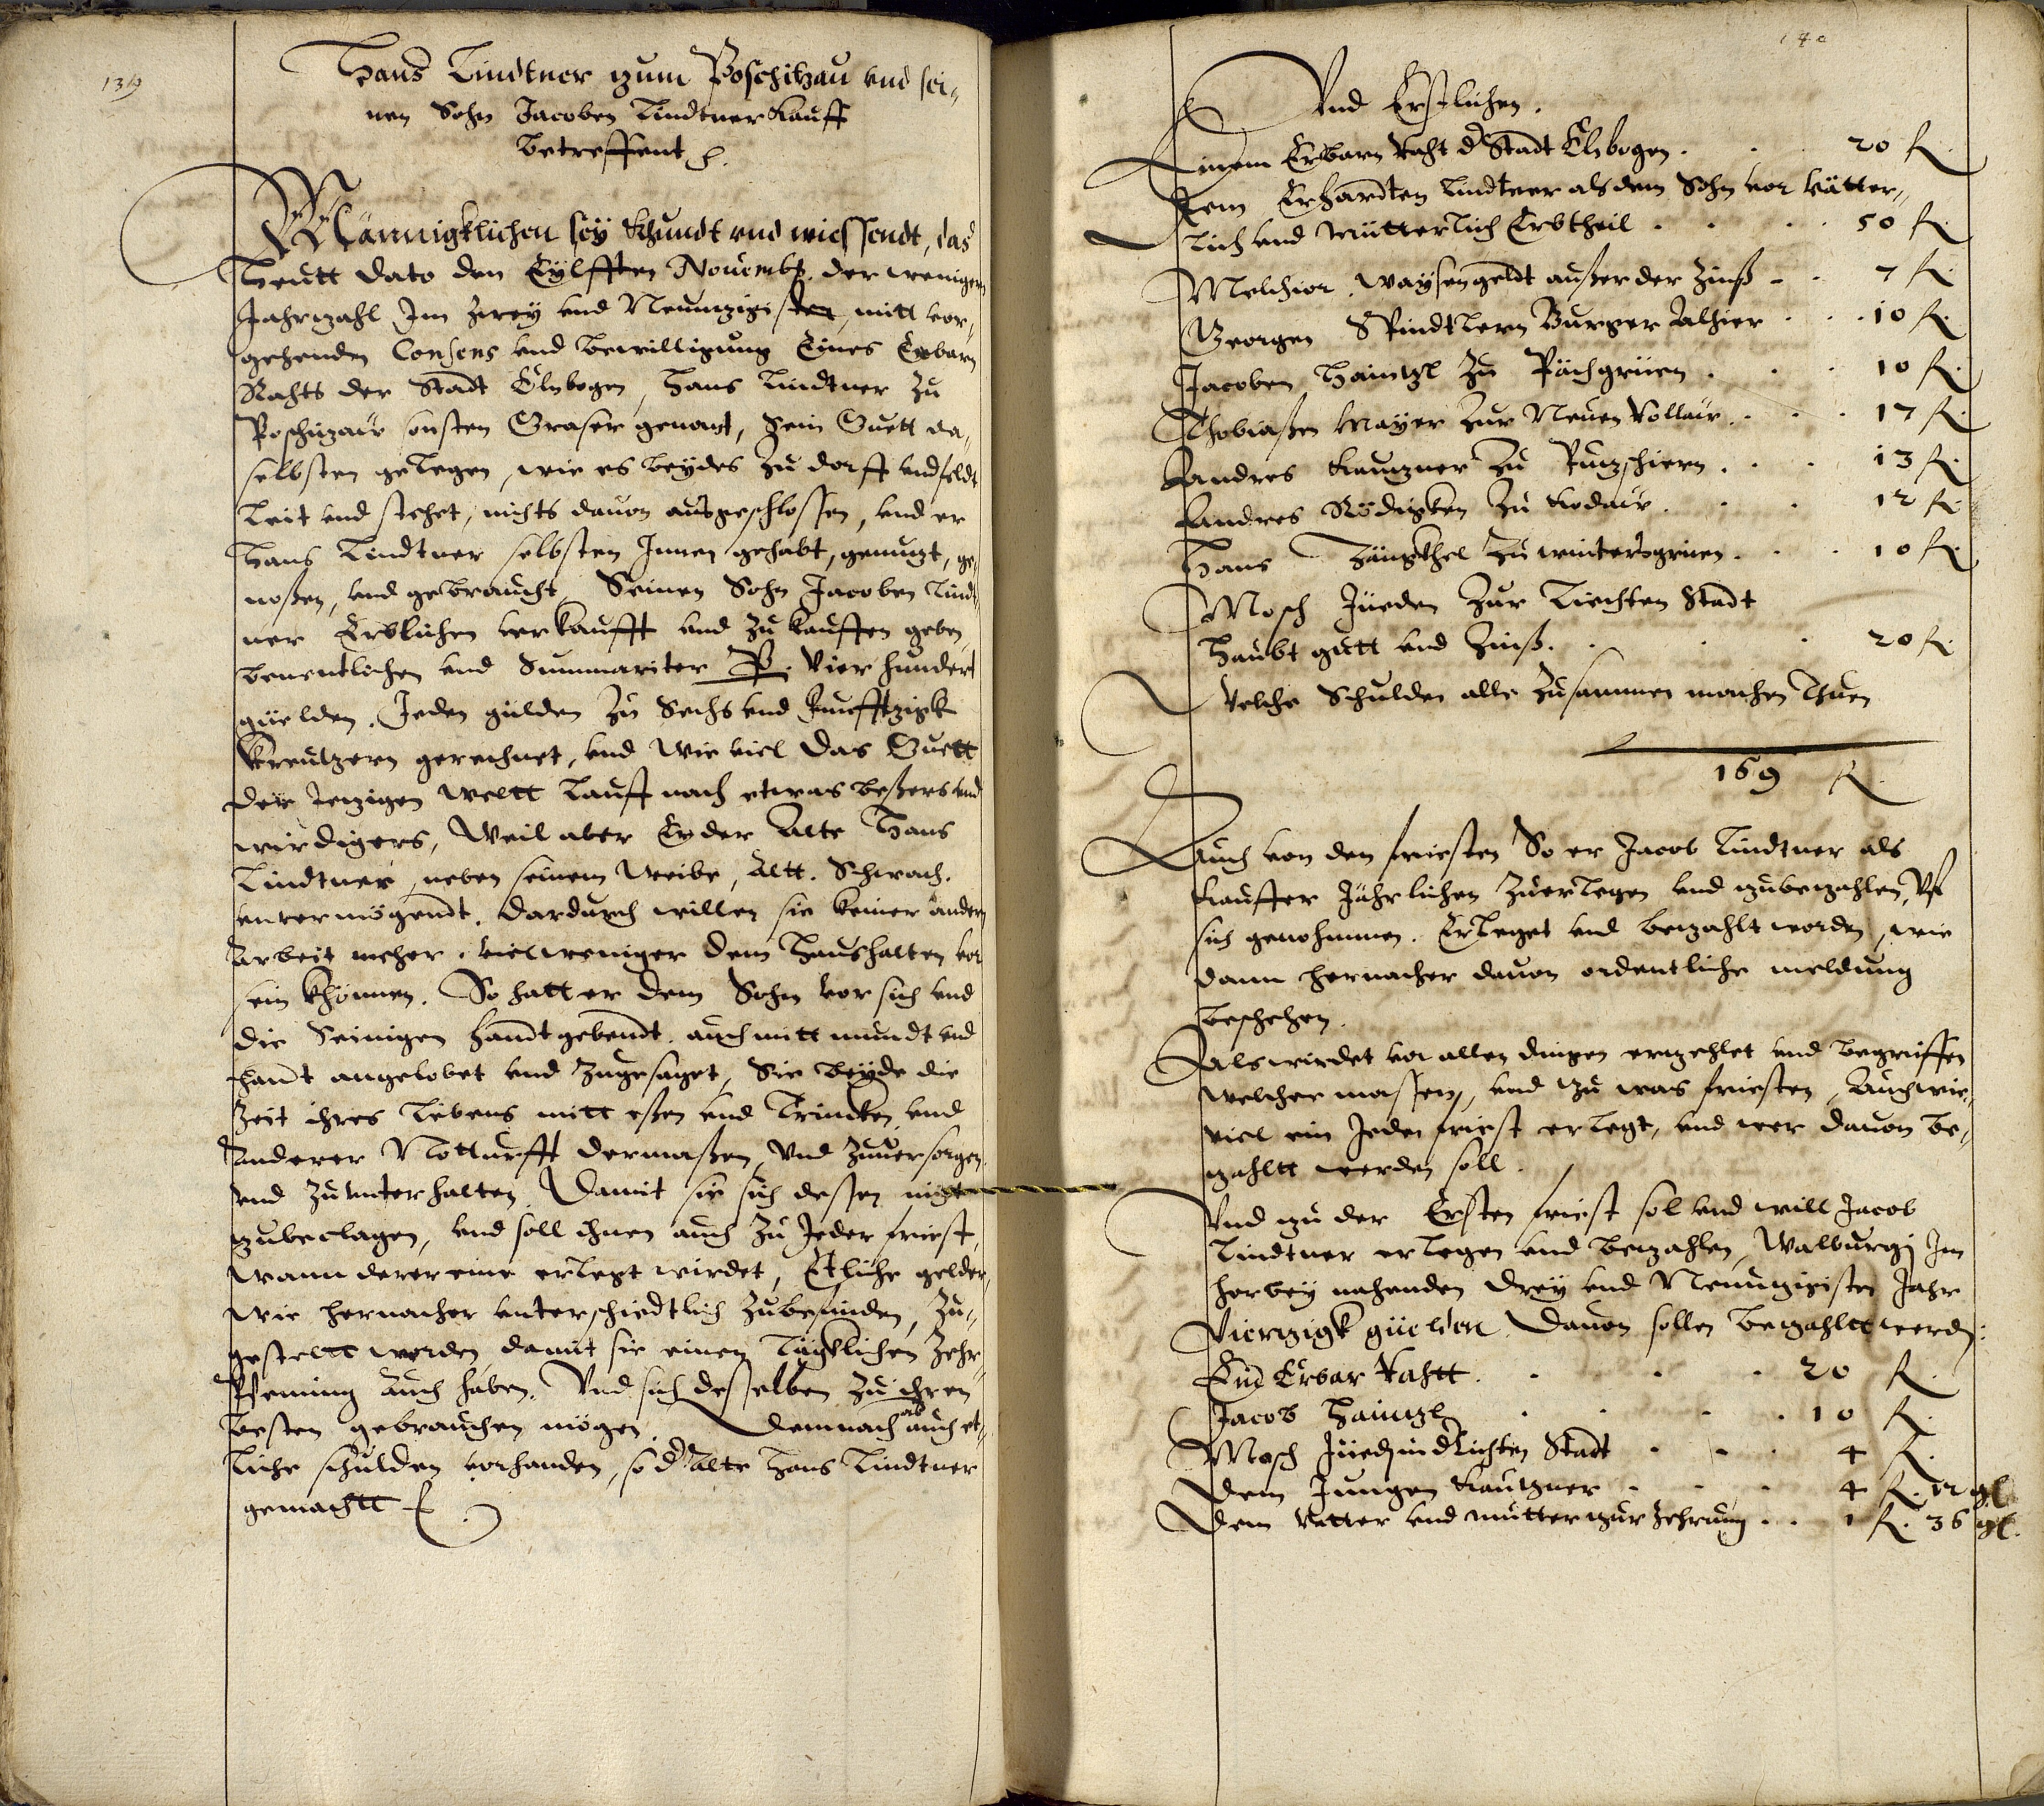 139
Hans Lindtner zum Poschitzau vnd sei¬
nen Sohn Jacoben Lindtner Kauff
betreffent
Männigklichen sey Khundt vnd wiessendt, das
heutt dato den Eylfften Nouembr. der wenigern
Jahrzahl Im Zwey vnd Neunzigisten, mitt vor¬
gehenden Consens vnd bewilligung Eines Erbarn
Rahts der Stadt Elnbogen, Hans Lindtner zu
Poschizaw sonsten Graser genant, sein Guett da¬
selbsten gelegen, wie es beydes zu dorff vnd feldt
leit vnd stehet, nichts dauon ausgeschlossen, vnd er
Hans Lindtner selbsten Innen gehabt, genuzt, ge¬
noßen, vnd gebraucht, Seinen Sohn Jacoben Lindt¬
ner Erblichen verkaufft vnd zu kauffen geben,
benentlichen vnd Summariter P. Vier hundert
guelden. Jeden gulden zu Sechs vnd Funfftzigk
Kreutzern gerechnet, vnd wie viel das Guett
der Jezigen weltt lauff nach etwas beßers vnd
wirdigers, Weil aber Er der Alte Hans
Lindtner, neben seinem Weibe, Altt. Schwach.
vnvermögendt. dardurch willen sie keiner andern
Arbeit mehr. viel weniger dem Haushalten vor
sein khönnen. So hatt er dem Sohn vor sich vnd
die Seinigen handtgebendt. auch mitt mundt vnd
handt angelobet vnd Zugesaget, Sie beyde die
Zeit ihres Lebens mitt eßen vnd Trincken, vnd
Anderer Notturfft dermaßen, vnd zuuersorgen
vnd zu vnterhalten. Damit sie sich dessen nicht
zubeclagen, vnd soll ihnen auch zu Jeder friest,
wann derer eine erlegt wirdet, Etliche gelder,
wie hernacher vnterschiedtlich zubefinden, zu¬
gesteltt werden, damit sie einen täglichen Zehr¬
Pfening auch haben. Vnd sich desselben zu ihren
besten gebrauchen mögen. Demnach ab auch et¬
liche schulden vorhanden, so d Alte Hans Lindtner
gemachtt
140
Vnd Erstlichen.
Einem Erbarn Raht d Stadt Elnbogen . . 20 fl.
Item Erhardten Lindtner als dem Sohn vor vätter¬
lich vnd mütterlich Erbtheil . . . 50 fl.
Melchior. waysengeldt außer der Zinß . . 7 fl.
Georgen Spindtlern Burger Alhier . . . 10 fl.
Jacoben Haintzl zu Pächgrüen . . . 10 fl.
Thobiaßen Mayer zur Neuen Rollaw . . . 17 fl.
Andres Kautzner zu Putzschiern . . . 13 fl.
Andres Rödigken zu Kodaw . . . 12 fl.
Hans Züngkhel zu wintersgrüen . . . 10 fl.
Mosch Jüeden zur Liechten Stadt
Haubt gutt vnd Zinß . . . 20 fl.
Welche Schulden alle zusammen machen thuen
169 fl.
Auch von den friesten So er Jacob Lindtner als
Kauffer Jährlichen zuerlegen vnd zubezahlen, vf
sich genohmmen. Erleget vnd bezahlt worden, wie
dann hernacher dauon ordentliche meldung
beschehen.
Als wirdet vor allen dingen erzehlet vnd begriffen
welcher massen, vnd zu was friesten, Auch wie¬
viel ein Jeder friest erlegt, vnd wer dauon be¬
zahltt werden soll.
Vnd zu der Ersten friest sol vnd will Jacob
Lindtner erlegen vnd bezahlen, Walburgj Im
herbey nahenden Drey vnd Neunzigisten Jahr
Vierzigk güelden. Dauon sollen bezahltt werdn:
Ein Erbar Rahtt . . . . 20 fl.
Jacob Haintzl . . . . 10 fl.
Mosch Jüed in d Lichten Stadt . . . 4 fl.
Dem Jungen Kautzner . . . 4 fl. 12 gl
Dem Vatter vnd mutter zur Zehrung . . 1 fl. 36 gl.